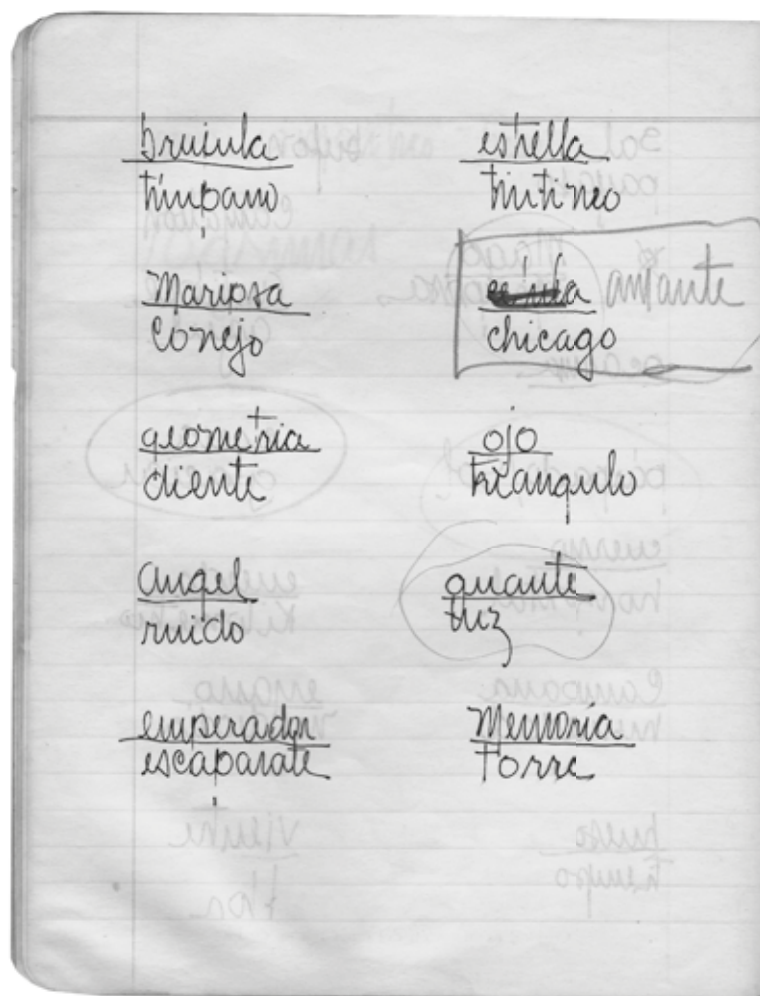 brujula
timpano
Mariposa
Conejo
geometria
diente
angel
ruido
emperador
escaparate
estrella
tintineo
amante
chicago
ojo
triangulo
guante
luz
Memoria
Torre